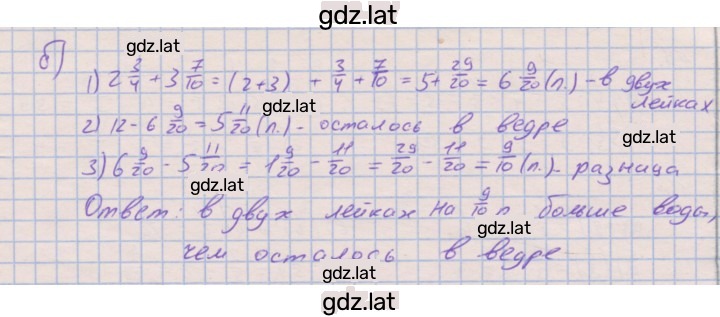 gdz.lat
б)
gdz.lat
1) 2 3/4 + 3 7/10 = (2+3) + 3/4 + 7/10 = 5 + 29/20 = 6 9/20 (л.) - в двух
лейках
gdz.lat
2) 12 - 6 9/20 = 5 11/20 (л.) - осталось в ведре
3) 6 9/20 - 5 11/20 = 1 9/20 - 11/20 = 29/20 - 11/20 = 9/10 (л.) - разница
gdz.lat
Ответ: в двух лейках на 9/10 л больше воды,
gdz.lat
чем осталось в ведре
gdz.lat